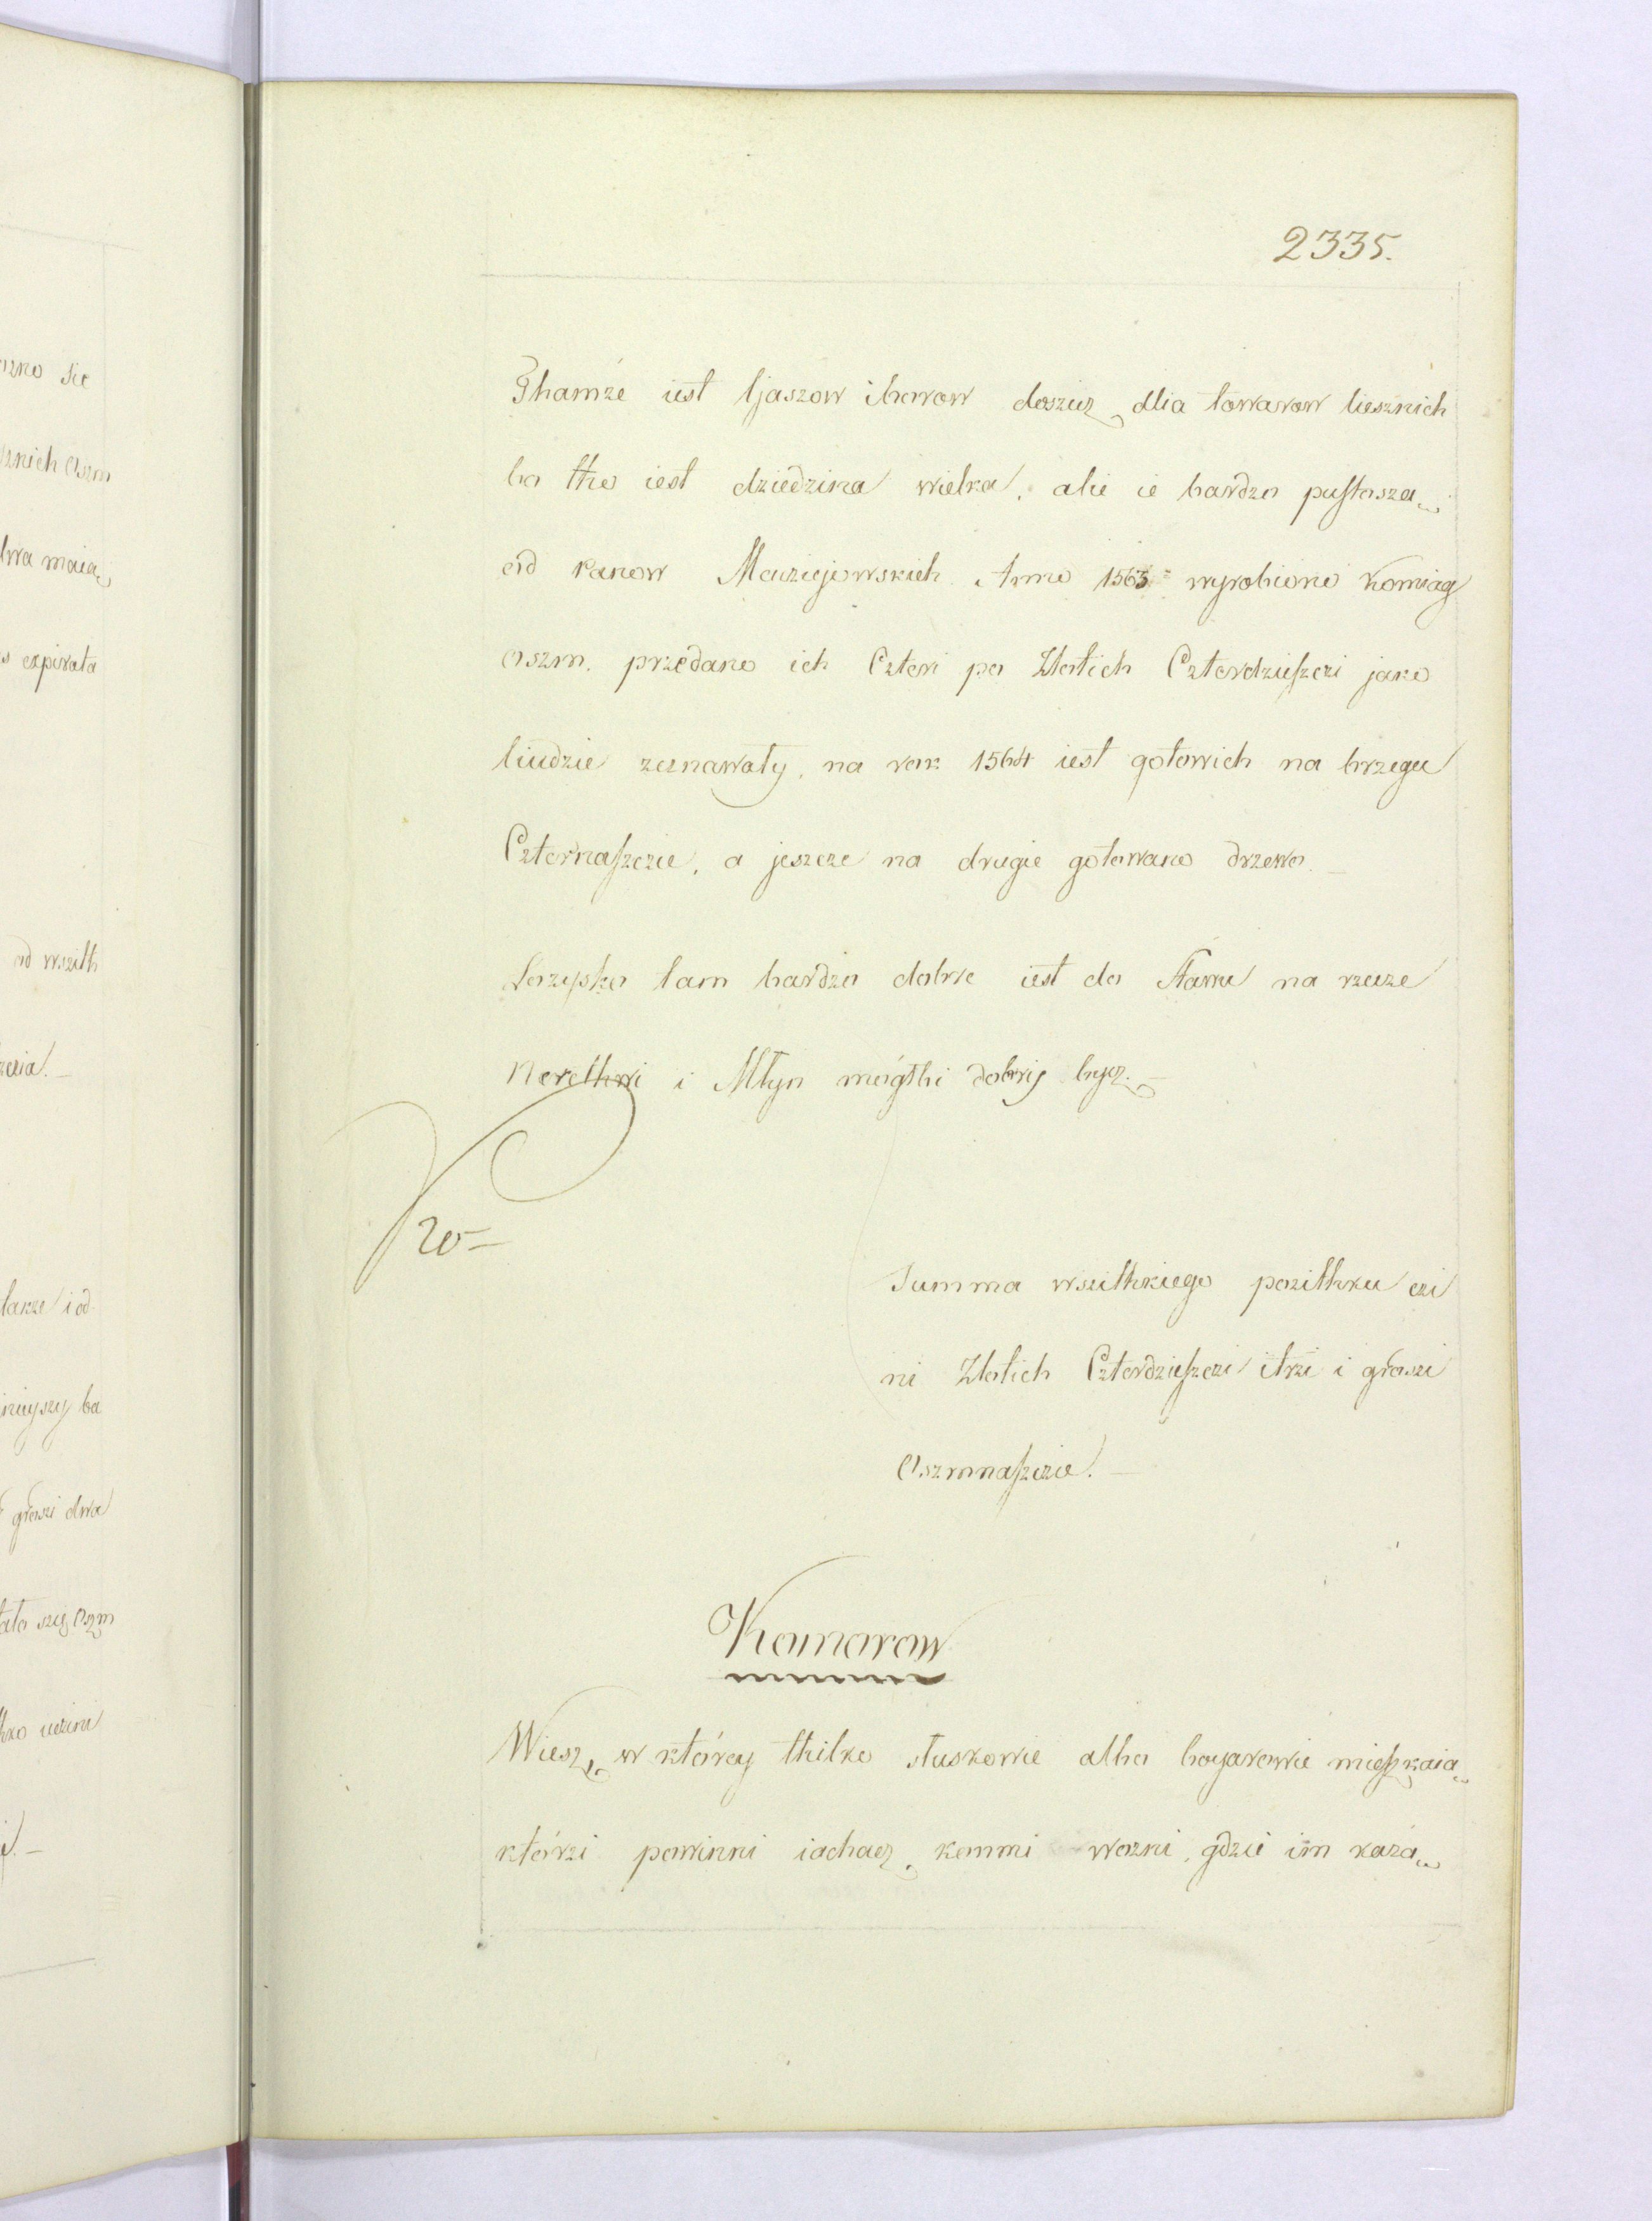 2335.
Thamże iest ljaszow i borow doszicz dlia towarow liesznich
bo tho iest dziedzina wielka, alie ie bardzo pustoszą
od Panow Macziejowskich Anno 1563 wyrobiono Komiąg
oszm. przedano ich Czteri po Zlotich Czterdzieszczi jako
liudzie zeznawały, na rok 1564 iest gotowich na brzegu
Czternaszczie, a jeszcze na drugie gotowano drzewo. —
Lozysko tam bardzo dobre iest do Stawu na rzecze
Nerethwi i Młyn mógłbi dobry bycz. —
Summa wszithkiego pozithku czi
ni Zlotich Czterdzieszczi i trzi i groszi
Oszmnaszczie. —
Komorow
Wiesz, w którey thilko słuskowie albo boyarowie mieszkaią
którzi powinni iachacz kommi wozni, gdzie im każą
izko sie
znich Oszm
dwa maią
s expirata
od wszith
zecia. —
larze i od
groszi dwa
ato szię Oszm